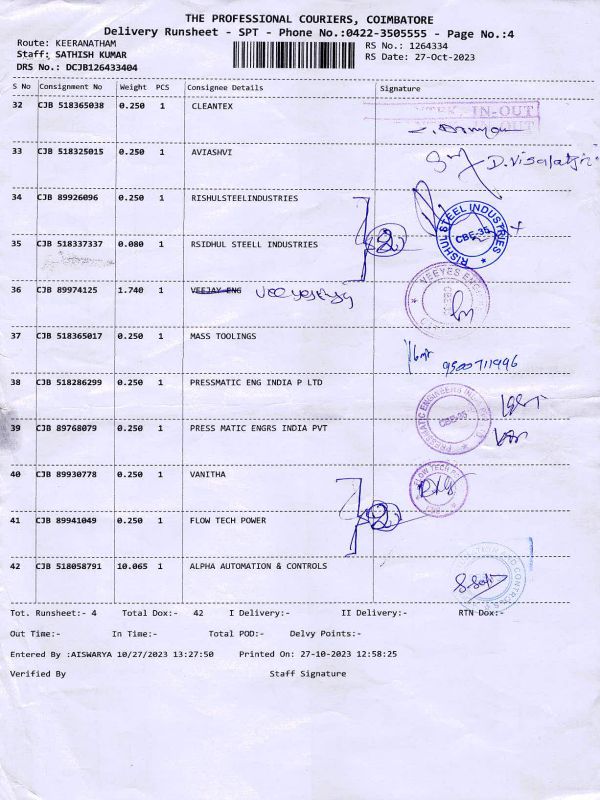 THE PROFESSIONAL COURIERS, COIMBATORE
Delivery Runsheet - SPT - Phone No.:0422-3505555 - Page No.:4
Route: KEERANATHAM
RS No.: 1264334
Staff: SATHISH KUMAR
RS Date: 27-Oct-2023
DRS No.: DCJB126433404
S No Consignment No Weight PCS Consignee Details Signature
32 CJB 518365038 0.250 1 CLEANTEX
IN-OUT
33 CJB 518325015 0.250 1 AVIASHVI
D.Visalatchi
34 CJB 89926096 0.250 1 RISHULSTEELINDUSTRIES
RISHUL STEEL INDUSTRIES CBE-35
35 CJB 518337337 0.080 1 RSIDHUL STEELL INDUSTRIES
2
36 CJB 89974125 1.740 1 VEEJAY ENG
VEEYES
37 CJB 518365017 0.250 1 MASS TOOLINGS
9500711996
38 CJB 518286299 0.250 1 PRESSMATIC ENG INDIA P LTD
PRESSMATIC ENGINEERS INDIA CBE-35
39 CJB 89768079 0.250 1 PRESS MATIC ENGRS INDIA PVT
40 CJB 89930778 0.250 1 VANITHA
FLOW TECH
2
41 CJB 89941049 0.250 1 FLOW TECH POWER
42 CJB 518058791 10.065 1 ALPHA AUTOMATION & CONTROLS
Tot. Runsheet:- 4 Total Dox:- 42 I Delivery:- II Delivery:- RTN Dox:-
Out Time:- In Time:- Total POD:- Delvy Points:-
Entered By :AISWARYA 10/27/2023 13:27:50 Printed On: 27-10-2023 12:58:25
Verified By Staff Signature